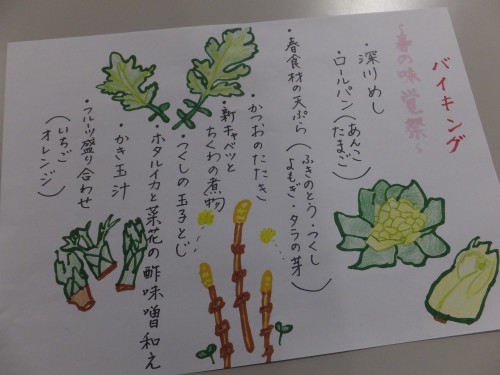 バイキング
~春の味覚祭~
・深川めし
・ロールパン(あんこ
たまご)
・春食材の天ぷら(ふきのとう・つくし
よもぎ・タラの芽)
・かつおのたたき
・新キャベツと
ちくわの煮物
・つくしの玉子とじ
・ホタルイカと菜花の酢味噌和え
・かき玉汁
・フルーツ盛り合わせ
(いちご
オレンジ)